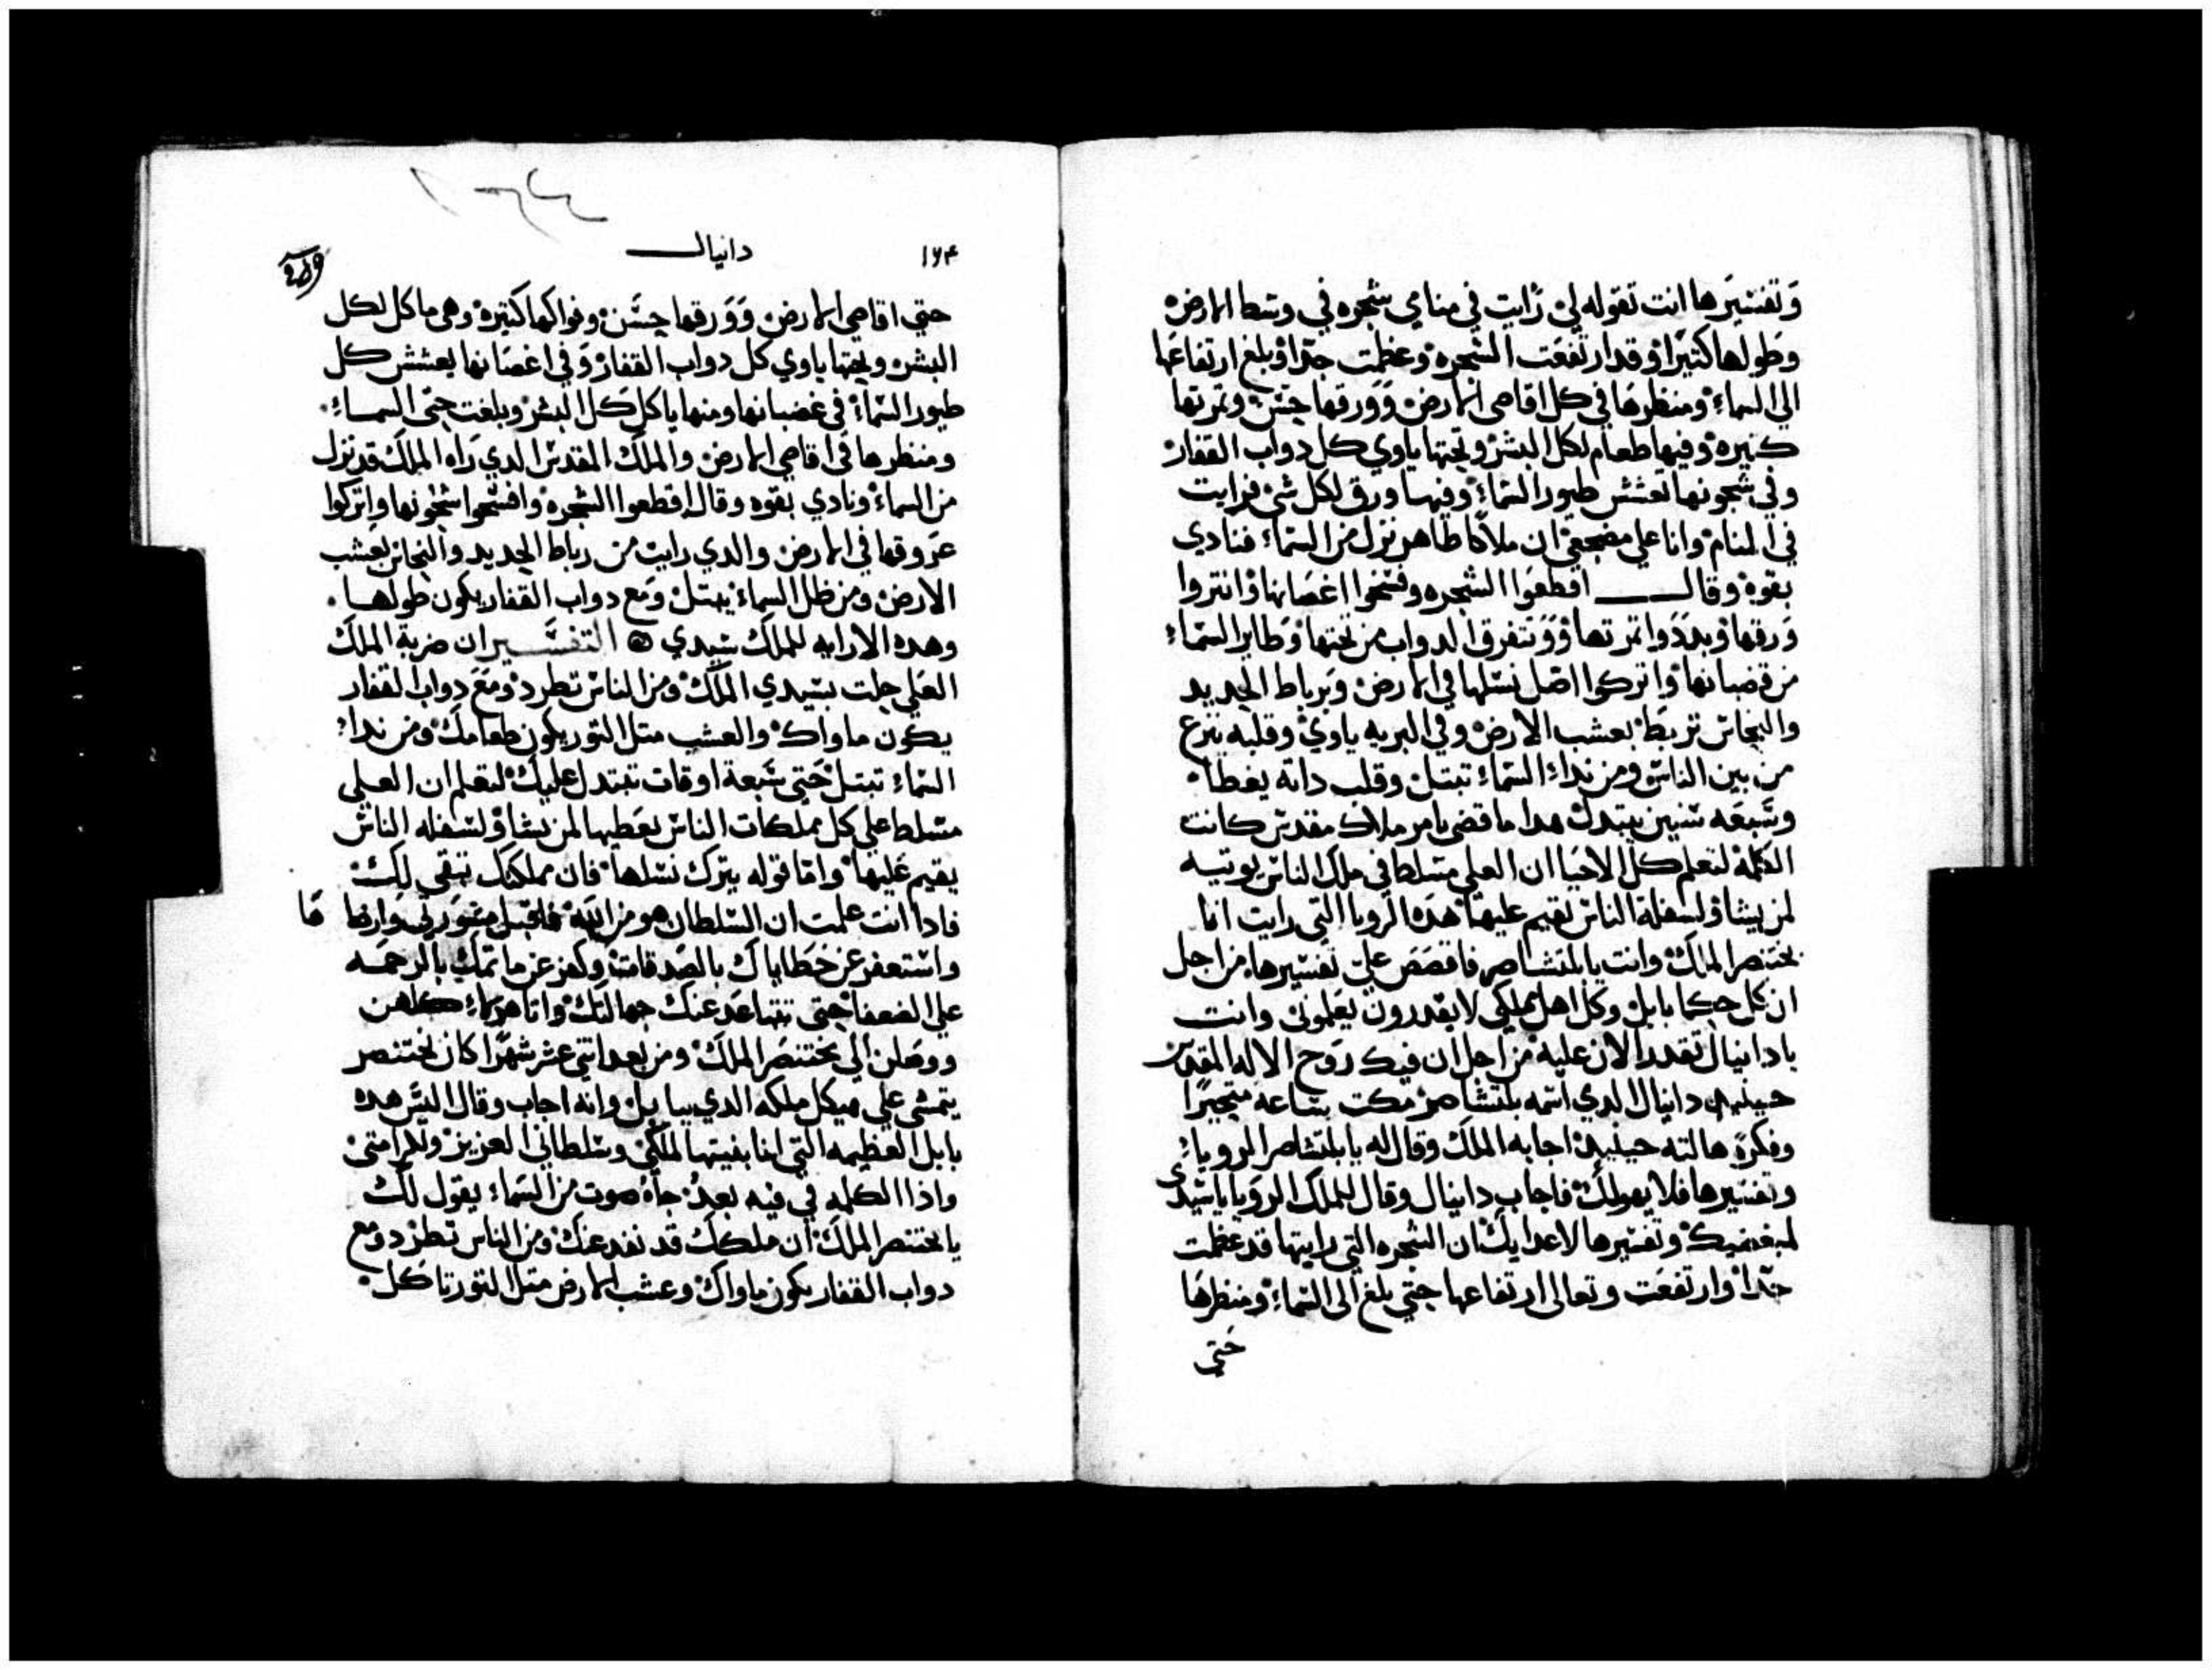 وتفسيرها انت تقوله لي رايت في منامي شجره في وسط الارض
وطولها كثيرا وقد ارتفعت الشجره وعظمت جدا وبلغ ارتفاعها
الى السماء ومنظرها في كل اقاصي الارض وورقها حسن وثمرتها
كثيره وفيها طعام لكل البشر وتحتها ياوي كل دواب القفار
وفي شجونها تعشش طيور السماء وفيها ورق لكل شي فرايت
في المنام وانا علي مضجعي ان ملاكا طاهر نزل من السماء فنادي
بقوه وقال اقطعوا الشجره وفسخوا اغصانها وانتروا
ورقها وبددوا تمرتها ووتتفرق الدواب من تحتها وطاير السماء
من قضبانها واتركوا اصل نسلها في الارض وبرباط الحديد
والنحاس تربط بعشب الارض وفي البريه ياوي وقلبه ينزع
من بين الناس ومن نداء السماء تبتل وقلب دابه يعطا
وسبعه سنين يبتدل هدا ما قضي بامر ملاك مقدس كانت
الكلمة لتعلم كل الاحيا ان العلي مسلط في ملك الناس يوتيه
لمن يشا ولسفلة الناس يقيم عليها هده الرويا التي رايت انا
بختنصر الملك وانت يا بلتشاصر فاقصص علي تفسيرها من اجل
ان كل حكما بابل وكل اهل مملكتي لا يقدرون يعلموني وانت
يا دانيال تقدر الان عليه من اجل ان فيك روح الاله المقدس
حينيدٍ دانيال الدي اسمه بلتشاصر مكت بساعه متحيرا
وفكره هالته حينيد اجابه الملك وقال له يا بلتشاصر الرويا
وتفسيرها فلا يهولك فاجاب دانيال وقال للملك الرويا يا سيدي
لمبغضيك وتفسيرها لاعدايك ان الشجره التي رايتها قد عظمت
جدا وارتفعت وتعالى ارتفاعها حتي بلغ الى السماء ومنظرها
حتي
١٦٤
دانيال
حتي اقاصي الارض وورقها حسن وفواكهها كتيره وهي ماكل لكل
البشر وتحتها ياوي كل دواب القفار وفي اغصانها يعشش كل
طيور السماء في غضبانها ومنها ياكل كل البشر وبلغت حتي السماء
ومنظرها في اقاصي الارض والملك المقدس الدي راه الملك قد نزل
من السماء ونادي بقوه وقال اقطعوا الشجره وافسخوا شجونها واتركوا
عروقها في الارض والدي رايت من رباط الحديد والنحاس بعشب
الارض ومن ظل السماء يبتل ومع دواب القفار يكون طولها
وهده الارايه للملك سيدي التفسير ان ضربة الملك
العلي حلت بسيدي الملك ومن الناس تطرد ومع دواب القفار
يكون ماواك والعشب متل التور يكون طعامك ومن نداء
السماء تبتل حتي سبعة اوقات تبتدل عليك لتعلم ان العلي
مسلط علي كل مملكات الناس يعطيها لمن يشا ولسفله الناس
يقيم عليها واما قوله يترك نسلها فان مملكتك تبقي لك
فادا انت علمت ان السلطان هو من الله فاقبل مشورتي وارضا ها
واستغفر عن خطاياك بالصدقات وكفر عن ماتمك بالرحمه
علي الضعفا حتي تتباعد عنك جهالتك واتا هولاء كلهن
ووصلن الي بختنصر الملك ومن بعد اتني عشر شهرا كان بختنصر
يتمشي علي هيكل ملكه الدي ببابل وانه اجاب وقال اليس هده
بابل العظيمه التي انا بنيتها لملكي وسلطاني العزيز
واذا الكلمه في فيه بعد جاه صوت من السماء يقول لك
يا بختنصر الملك ان ملكك قد نفد عنك ومن الناس تطرد ومع
دواب القفار يكون ماواك وعشب الارض متل التور تاكل